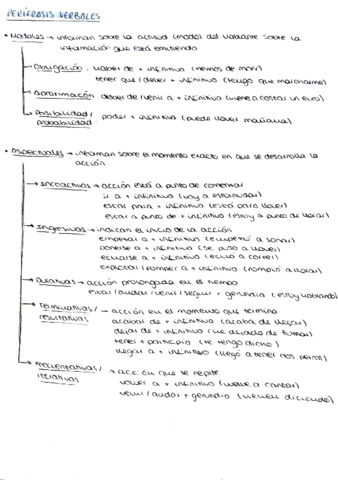 PERÍFRASIS VERBALES
• Modales → informan sobre la actitud (modo) del hablante sobre la
información que está emitiendo
→ Obligación: haber de + infinitivo (hemos de morir)
tener que / deber + infinitivo (tengo que marcharme)
→ Aproximación: deber de / venir a + infinitivo (viene a costar un euro)
→ Posibilidad / probabilidad: poder + infinitivo (puede llover mañana)
• Aspectuales → informan sobre el momento exacto en que se desarrolla la
acción
→ Incoactivas → acción está a punto de comenzar
ir a + infinitivo (voy a estornudar)
estar para + infinitivo (está para llover)
estar a punto de + infinitivo (estoy a punto de llorar)
→ Ingresivas → indican el inicio de la acción
empezar a + infinitivo (empezó a sonar)
ponerse a + infinitivo (se puso a llover)
echarse a + infinitivo (echó a correr)
romper a + infinitivo (rompió a llorar)
→ Durativas → acción prolongada en el tiempo
estar / andar / venir / seguir + gerundio (estoy hablando)
→ Terminativas / resultativas → acción en el momento que termina
acabar de + infinitivo (acaba de llegar)
dejar de + infinitivo (he dejado de fumar)
tener + participio (te tengo dicho)
llegar a + infinitivo (llegó a tener dos perros)
→ Frecuentativas / iterativas → acción que se repite
volver a + infinitivo (vuelve a cantar)
venir / andar + gerundio (vienen diciendo)